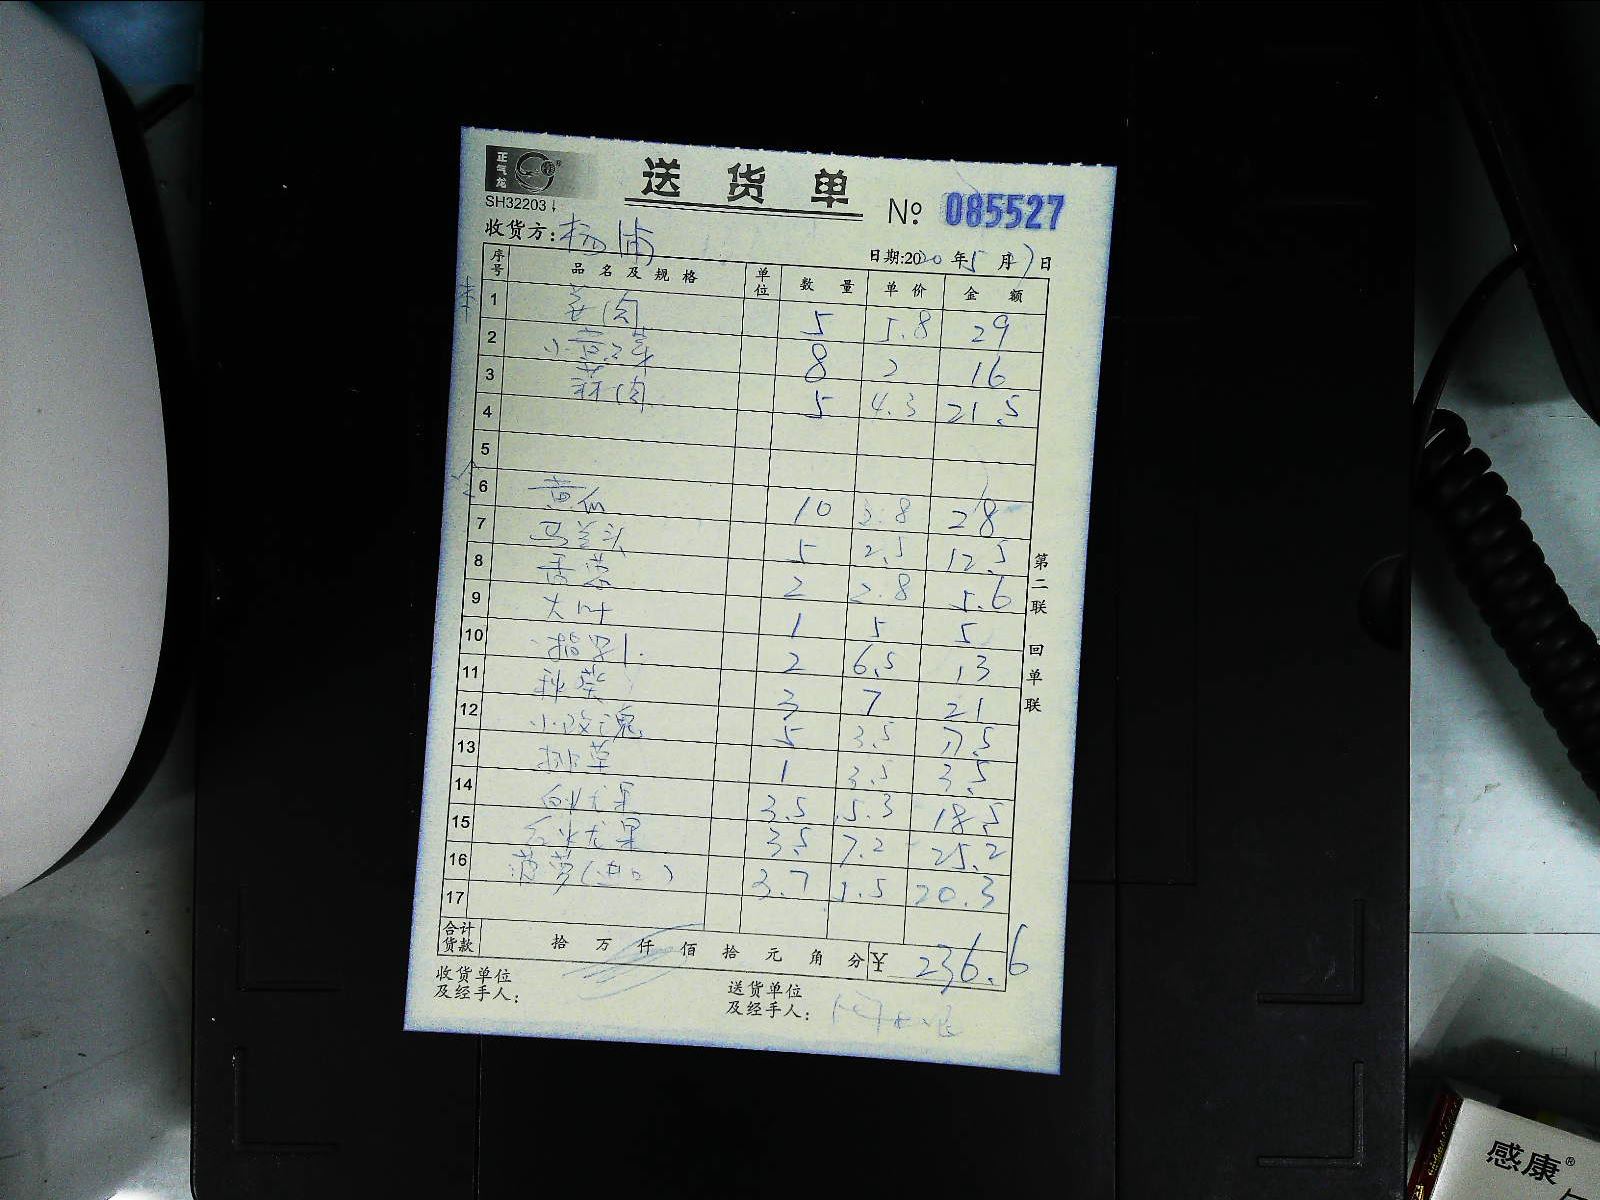 正气龙
送货单
SH32203
№ 085527
收货方: 杨浦
日期:2020年5月7日
序号 品名及规格 单位 数量 单价 金额
1 姜肉 5 5.8 29
2 小黄 8 2 16
3 蒜肉 5 4.3 21.5
4
5
6 黄瓜 10 2.8 28
7 马兰头 5 2.5 12.5
8 香葱 2 2.8 5.6
9 大叶 1 5 5
10 2 6.5 13
11 秋葵 3 7 21
12 小玫瑰 5 3.5 17.5
13 排草 1 3.5 3.5
14 白火龙果 3.5 5.3 18.5
15 红火龙果 3.5 7.2 25.2
16 菠萝(进口) 3.7 5.5 20.3
17
合计货款 拾万仟佰拾元角分 ¥ 236.6
收货单位及经手人:
送货单位及经手人:
第二联 回单联
感康®